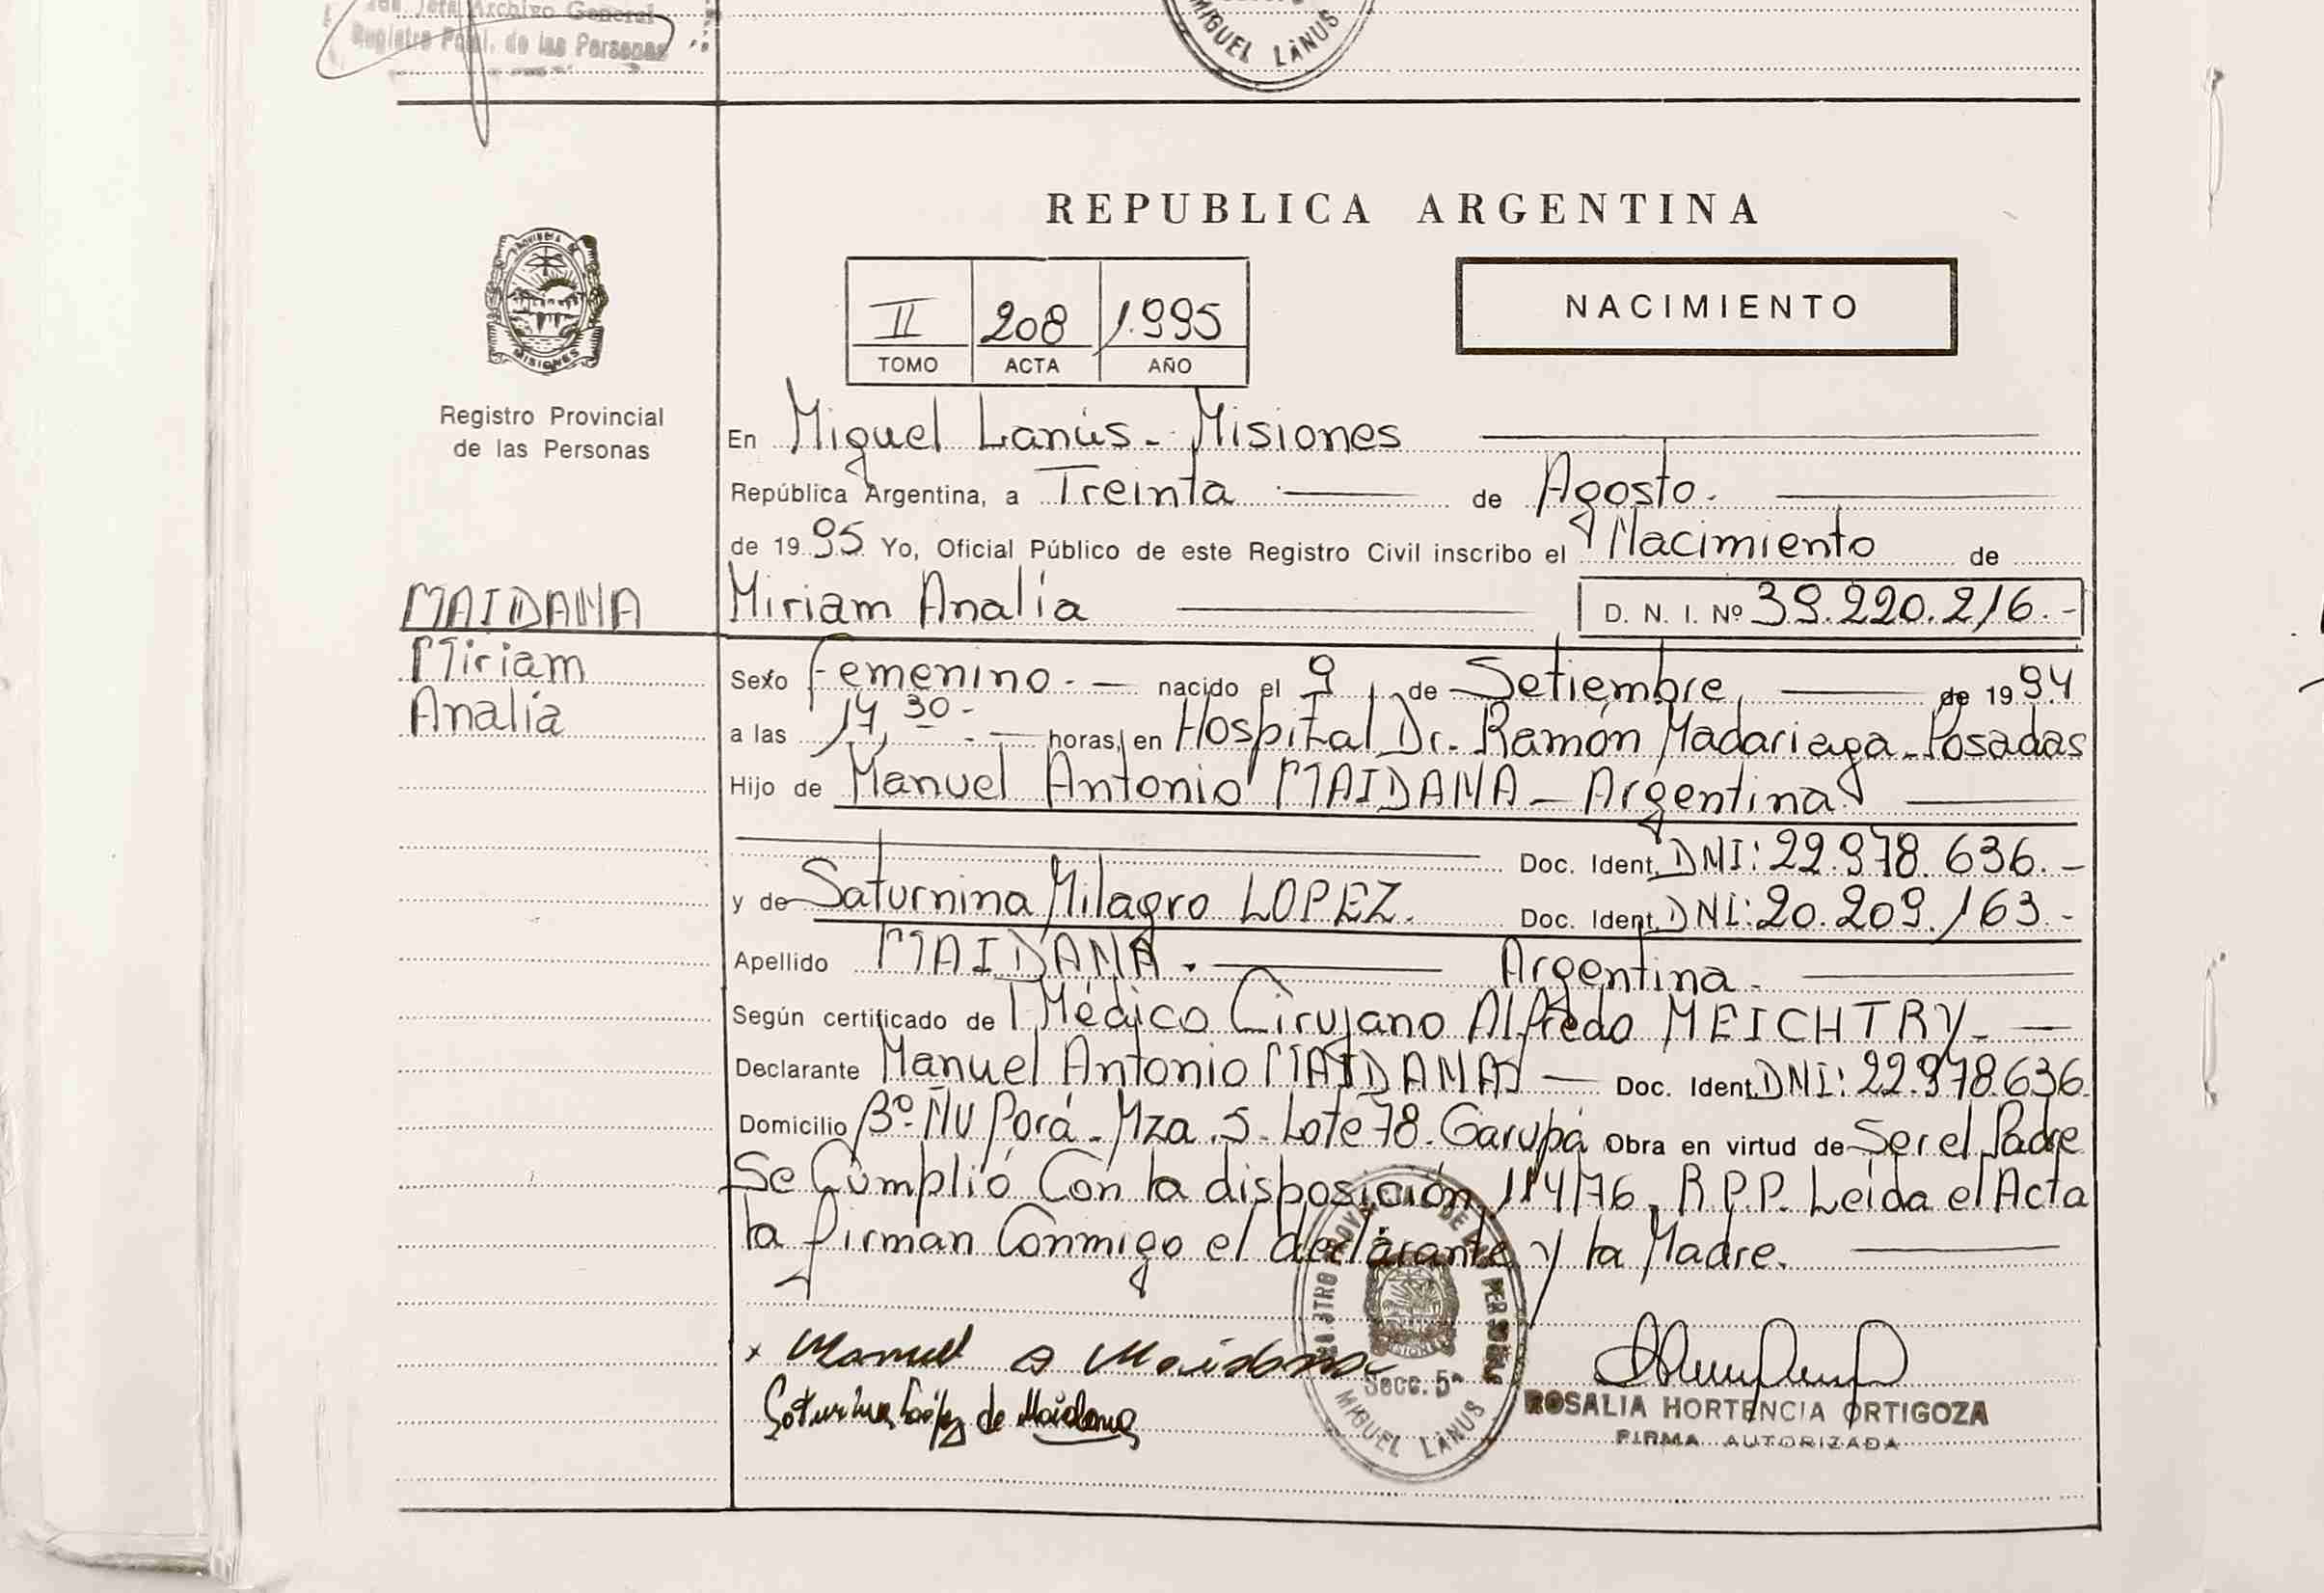 Archivo General
Registro Pcial. de las Personas
MIGUEL LANUS
REPUBLICA ARGENTINA
PROVINCIA DE
MISIONES
II 208 1.995
TOMO ACTA AÑO
NACIMIENTO
Registro Provincial
de las Personas
En Miguel Lanús - Misiones
República Argentina, a Treinta de Agosto.
de 1995 Yo, Oficial Público de este Registro Civil inscribo el Nacimiento de
MAIDANA
Miriam
Analía
Miriam Analía D. N. I. Nº 39.220.216.-
Sexo femenino.- nacido el 9 de Setiembre de 1994
a las 14,30- horas, en Hospital Dr. Ramón Madariaga - Posadas
Hijo de Manuel Antonio MAIDANA - Argentina
Doc. Ident. DNI: 22.978.636.-
y de Saturnina Milagro LOPEZ. Doc. Ident. DNI: 20.209.163.-
Apellido MAIDANA. Argentina.
Según certificado de l Médico Cirujano Alfredo MEICHTRY-
Declarante Manuel Antonio MAIDANA Doc. Ident. DNI: 22.978.636
Domicilio Bº Ñu Porá - Mza. 5 - Lote 78. Garupá Obra en virtud de Ser el Padre
Se Cumplió Con la disposición 114/76, R.P.P. Leída el Acta
la firman Conmigo el declarante y la Madre.
Manuel A Maidana
Saturnina López de Maidana
Secc. 5ª
MIGUEL LANUS
ROSALIA HORTENCIA ORTIGOZA
FIRMA AUTORIZADA